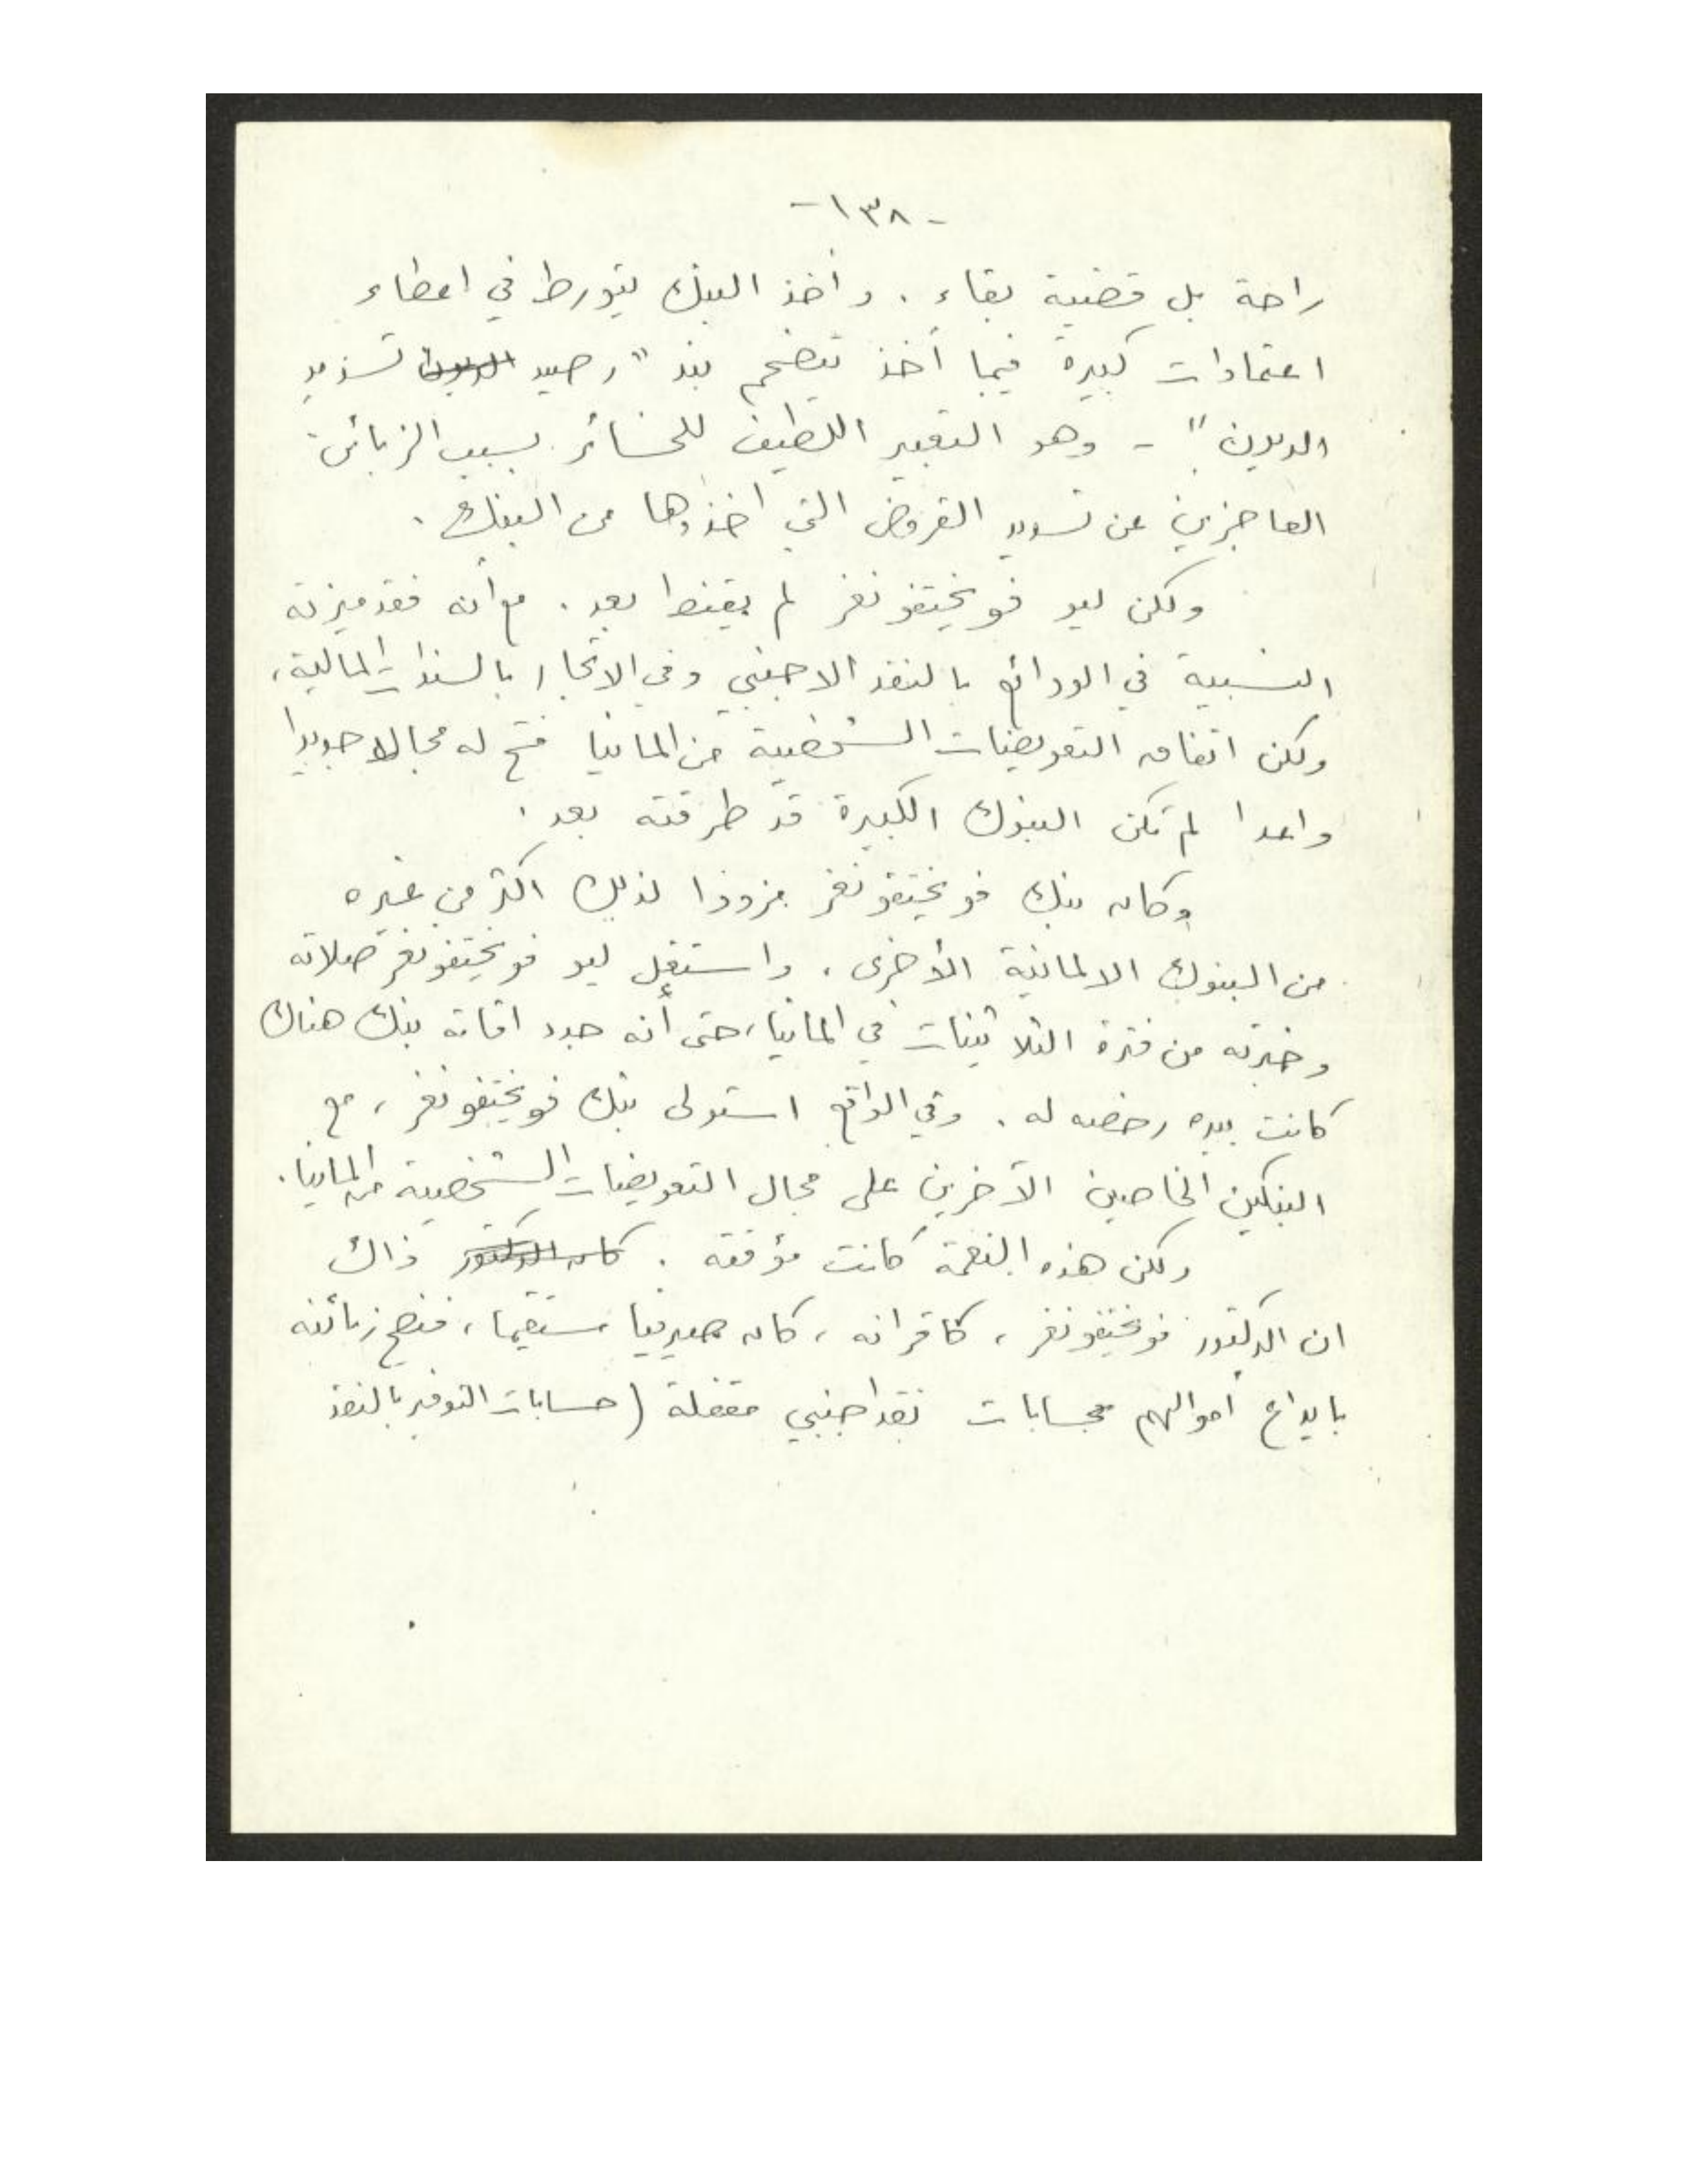 -١٣٨-
راحة بل قضية بقاء. وأخذ البنك يتورط في اعطاء
اعتمادات كبيرة فيما أخذ يتضخم بند "رصيد الديون تسديد
الديون" - وهو التعبير اللطيف للخسائر بسبب الزبائن
العاجزين عن تسديد القروض التي اخذوها من البنك.
ولكن ليو فويختفونغر لم يقنط بعد. مع أنه فقد ميزته
النسبية في الودائع بالنقد الاجنبي وفي الاتجار بالسندات المالية،
ولكن اتفاق التعويضات الشخصية من المانيا فتح له مجالا جديدا
واعدا لم تكن البنوك الكبيرة قد طرقته بعد.
وكان بنك فويختفونغر مزودا لذلك اكثر من غيره
من البنوك الالمانية الأخرى. واستغل ليو فويختفونغر صلاته
وخبرته من فترة الثلاثينات في المانيا، حتى أنه جدد اقامة بنك هناك
كانت بيده رخصة له. وفي الواقع استولى بنك فويختفونغر، مع
البنكين الخاصين الآخرين على مجال التعويضات الشخصية من المانيا.
ولكن هذه النعمة كانت مؤقتة. كان الدكتور ذاك
ان الدكتور فويختفونغر، كاقرانه، كان صيرفيا مستقيما، فنصح زبائنه
بايداع أموالهم بحسابات نقد اجنبي مقفلة (حسابات التوفير بالنقد